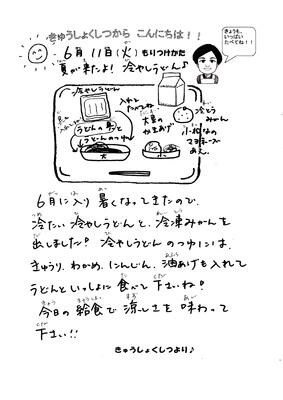 きゅうしょくしつから こんにちは！！
きょうも、
いっぱい
たべてね！！
6月11日(火) もりつけかた
夏が来たよ！ 冷やしうどん♪
冷やしうどん
入れて
たべてね
うどんの具と
うどんのつゆ
大豆の
かきあげ
冷とう
みかん
小松なの
マヨネーズ
あえ
大
小
6月に入り 暑くなってきたので、
冷たい 冷やしうどんと、冷凍みかんを
出しました！ 冷やしうどん のつゆには、
きゅうり、わかめ、にんじん、油あげも 入れて
うどんといっしょに 食べて 下さいね！
今日の 給食で 涼しさを 味わって
下さい！！
きゅうしょくしつより♪